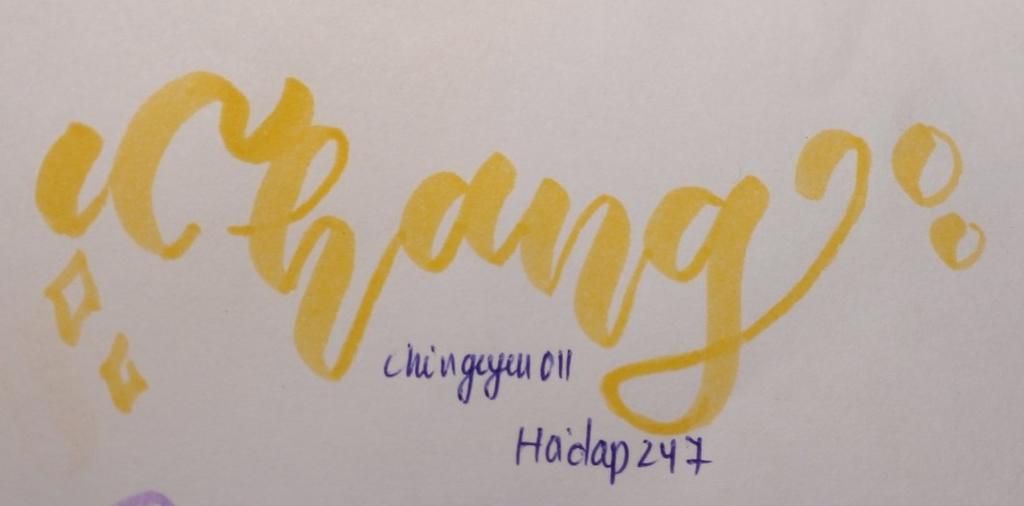 Chang
chingyen011
Hoidap247